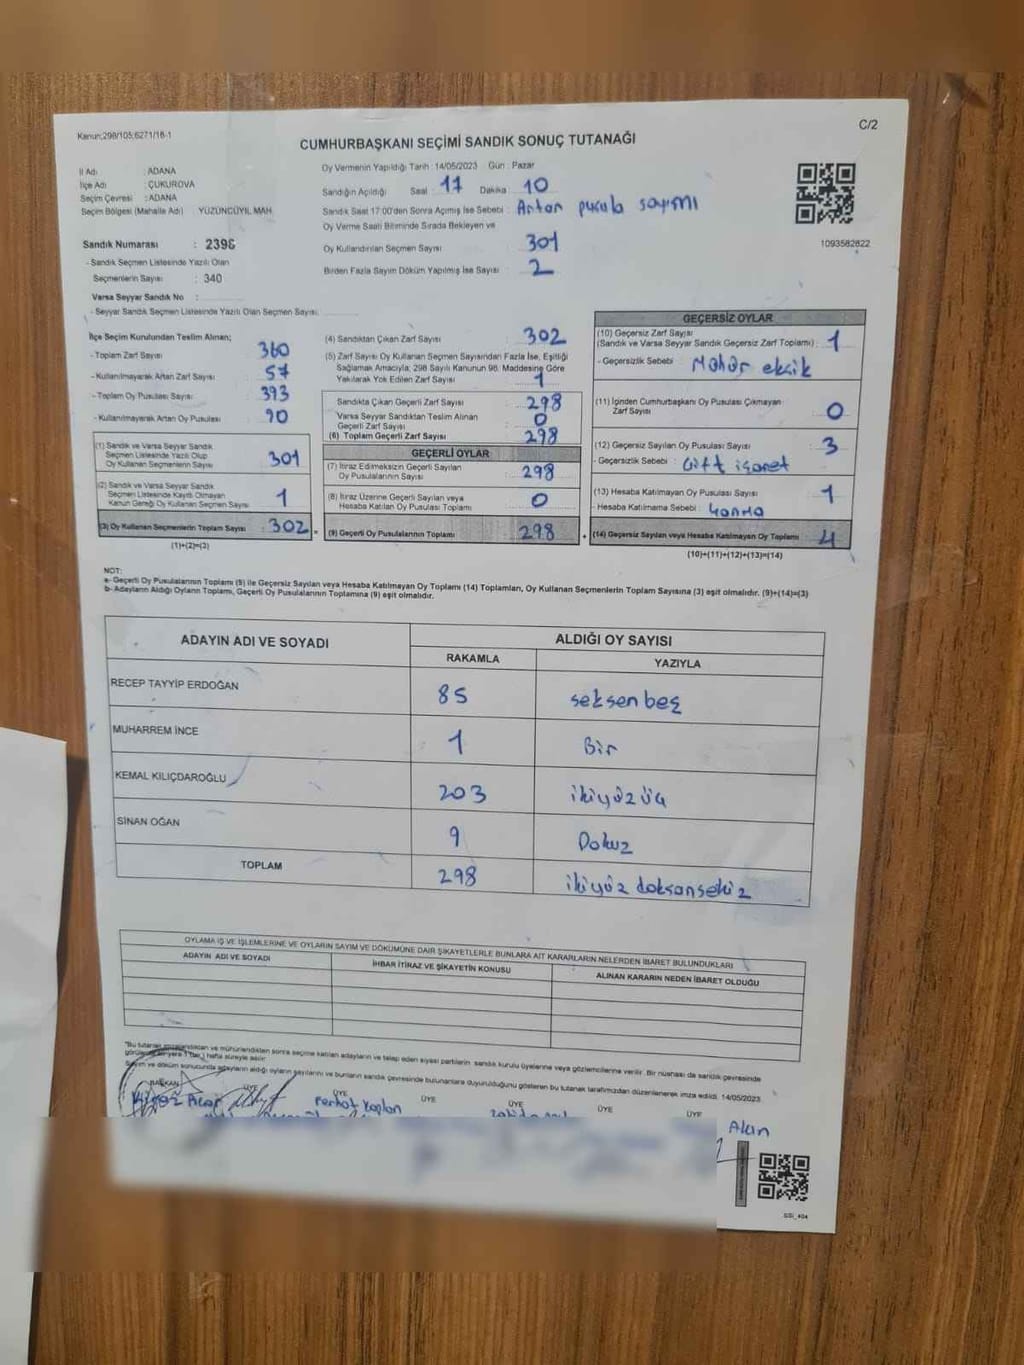 Kanun;298/105;6271/18-1
C/2
CUMHURBAŞKANI SEÇİMİ SANDIK SONUÇ TUTANAĞI
İl Adı : ADANA
İlçe Adı : ÇUKUROVA
Seçim Çevresi : ADANA
Seçim Bölgesi (Mahalle Adı) YÜZÜNCÜYIL MAH.
Sandık Numarası : 2396
- Sandık Seçmen Listesinde Yazılı Olan
Seçmenlerin Sayısı : 340
Varsa Seyyar Sandık No :
- Seyyar Sandık Seçmen Listesinde Yazılı Olan Seçmen Sayısı
Oy Vermenin Yapıldığı Tarih :14/05/2023 Gün : Pazar
Sandığın Açıldığı Saat 17 Dakika 10
Sandık Saat 17:00'den Sonra Açılmış İse Sebebi : Artan pusula sayımı
Oy Verme Saati Bitiminde Sırada Bekleyen ve
Oy Kullandırılan Seçmen Sayısı : 301
Birden Fazla Sayım Döküm Yapılmış İse Sayısı : 2
1093582822
İlçe Seçim Kurulundan Teslim Alınan;
- Toplam Zarf Sayısı : 360
- Kullanılmayarak Artan Zarf Sayısı : 57
- Toplam Oy Pusulası Sayısı : 393
- Kullanılmayarak Artan Oy Pusulası : 90
(1) Sandık ve Varsa Seyyar Sandık
Seçmen Listesinde Yazılı Olup
Oy Kullanan Seçmenlerin Sayısı : 301
(2) Sandık ve Varsa Seyyar Sandık
Seçmen Listesinde Kayıtlı Olmayan
Kanun Gereği Oy Kullanan Seçmen Sayısı : 1
(3) Oy Kullanan Seçmenlerin Toplam Sayısı : 302
(1)+(2)=(3)
(4) Sandıktan Çıkan Zarf Sayısı : 302
(5) Zarf Sayısı Oy Kullanan Seçmen Sayısından Fazla İse, Eşitliği
Sağlamak Amacıyla; 298 Sayılı Kanunun 98. Maddesine Göre
Yakılarak Yok Edilen Zarf Sayısı : 1
Sandıkta Çıkan Geçerli Zarf Sayısı : 298
Varsa Seyyar Sandıktan Teslim Alınan
Geçerli Zarf Sayısı : 0
(6) Toplam Geçerli Zarf Sayısı : 298
GEÇERLİ OYLAR
(7) İtiraz Edilmeksizin Geçerli Sayılan
Oy Pusulalarının Sayısı : 298
(8) İtiraz Üzerine Geçerli Sayılan veya
Hesaba Katılan Oy Pusulası Toplamı : 0
= (9) Geçerli Oy Pusulalarının Toplamı : 298
GEÇERSİZ OYLAR
(10) Geçersiz Zarf Sayısı
(Sandık ve Varsa Seyyar Sandık Geçersiz Zarf Toplamı) : 1
- Geçersizlik Sebebi : Mühür eksik
(11) İçinden Cumhurbaşkanı Oy Pusulası Çıkmayan
Zarf Sayısı : 0
(12) Geçersiz Sayılan Oy Pusulası Sayısı : 3
- Geçersizlik Sebebi : Çift işaret
(13) Hesaba Katılmayan Oy Pusulası Sayısı : 1
- Hesaba Katılmama Sebebi :
+ (14) Geçersiz Sayılan veya Hesaba Katılmayan Oy Toplamı : 4
(10)+(11)+(12)+(13)=(14)
NOT:
a- Geçerli Oy Pusulalarının Toplamı (9) ile Geçersiz Sayılan veya Hesaba Katılmayan Oy Toplamı (14) Toplamları, Oy Kullanan Seçmenlerin Toplam Sayısına (3) eşit olmalıdır. (9)+(14)=(3)
b- Adayların Aldığı Oyların Toplamı, Geçerli Oy Pusulalarının Toplamına (9) eşit olmalıdır.
ADAYIN ADI VE SOYADI
ALDIĞI OY SAYISI
RAKAMLA YAZIYLA
RECEP TAYYİP ERDOĞAN 85 seksen beş
MUHARREM İNCE 1 Bir
KEMAL KILIÇDAROĞLU 203 ikiyüz üç
SİNAN OĞAN 9 Dokuz
TOPLAM 298 ikiyüz doksansekiz
OYLAMA İŞ VE İŞLEMLERİNE VE OYLARIN SAYIM VE DÖKÜMÜNE DAİR ŞİKAYETLERLE BUNLARA AİT KARARLARIN NELERDEN İBARET BULUNDUKLARI
ADAYIN ADI VE SOYADI
İHBAR İTİRAZ VE ŞİKAYETİN KONUSU
ALINAN KARARIN NEDEN İBARET OLDUĞU
"Bu tutanak imzalandıktan ve mühürlendikten sonra seçime katılan adayların ve talep eden siyasi partilerin sandık kurulu üyelerine veya gözlemcilerine verilir. Bir nüshası da sandık çevresinde
görülebilir yere 1 (bir) hafta süreyle asılır.
Sayım ve döküm sonucunda adayların aldığı oyların sayılarını ve bunların sandık çevresinde bulunanlara duyurulduğunu gösteren bu tutanak tarafımızdan düzenlenerek imza edildi. 14/05/2023
BAŞKAN ÜYE ÜYE ÜYE ÜYE ÜYE ÜYE
Ferhat Kaplan
Akın